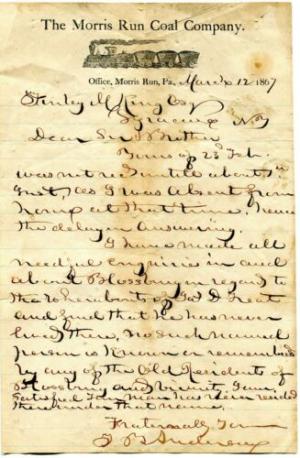 The Morris Run Coal Company.
Office, Morris Run, Pa., March 12 1867
Stanley M King Esq
Syracuse NY
Dear Sir & Brother
Yours of 23 Feb.
was not rec'd until about
inst, as I was absent from
home at that time, hence
the delay in answering.
I have made all
needful enquiries in and
about Blossburg in regard to
the whereabouts of Geo D
and find that he has never
lived there, no such named
person is known or remembered
by any of the Old Residents of
Blossburg and vicinity. I am
satisfied that man has never resided
there under that name.
Fraternally Yours